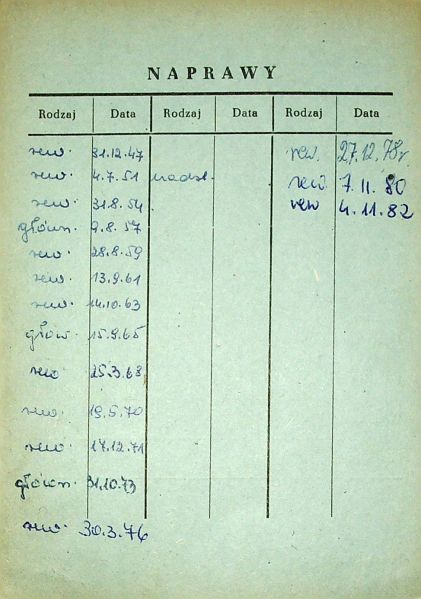 NAPRAWY
Rodzaj Data Rodzaj Data Rodzaj Data
rew. 31.12.47 rew. 27.12.78r.
rew. 4.7.51 nadzw. rew. 7.11.80
rew. 31.8.54 rew 4.11.82
główn. 9.8.57
rew. 28.8.59
rew. 13.9.61
rew. 14.10.63
głów. 15.9.65
rew 25.3.68
rew. 19.5.70
rew. 17.12.71
główn. 31.10.73
rew. 30.3.76